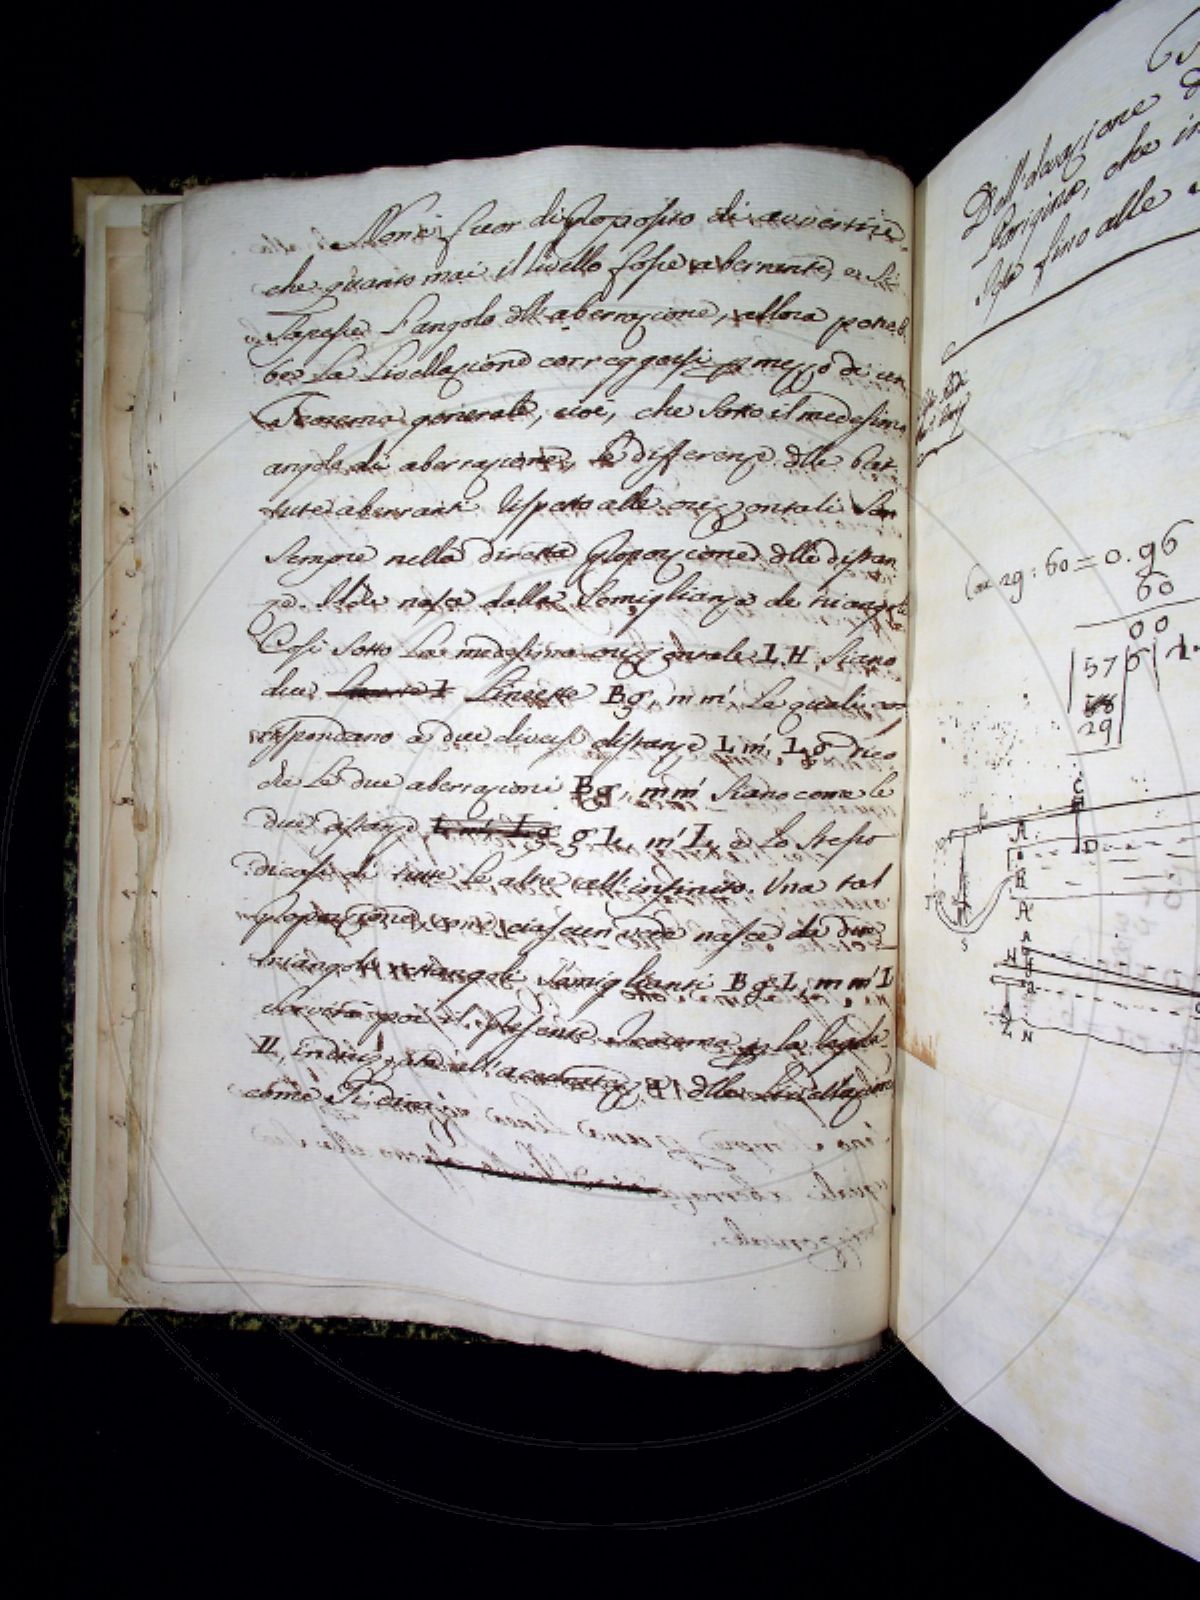 Non è fuor di proposito di avvertire,
che quanto mai il livello fosse aberrante, e si
sapesse l'angolo dell'aberrazione, allora potreb-
be la Livellazione correggersi p mezzo di un
Teorema generale, cioè, che sotto il medesimo
angolo di aberrazione, le differenze delle bat-
tute aberranti rispetto alle orizzontali son
sempre nella diretta proporzione delle distan
ze. Il che nasce dalla somiglianza de triangoli
Così sotto la medesima orizzontale L H, siano
due Lineette Bg, m m', le quali cor
rispondano a due diverse distanze L m', L g dico
che le due aberrazioni Bg, m m' siano come le
due distanze L m', L g g L, m' L, e lo stesso
dicasi di tutte le altre all'infinito. Una tal
proporzione, come ciascun vede nasce da due
triangoli rettangoli somiglianti B g L, m m' L
Servirà poi il presente Teorema p la regola
II, indirizzata all' delle Livellazioni
come si dirà.
Dell'elevazione
Parigina, che in
fino alle
Con 29 : 60 = 0. 96
60
00
57 6
29
C
A
D
B
A
S
A
H
Z N